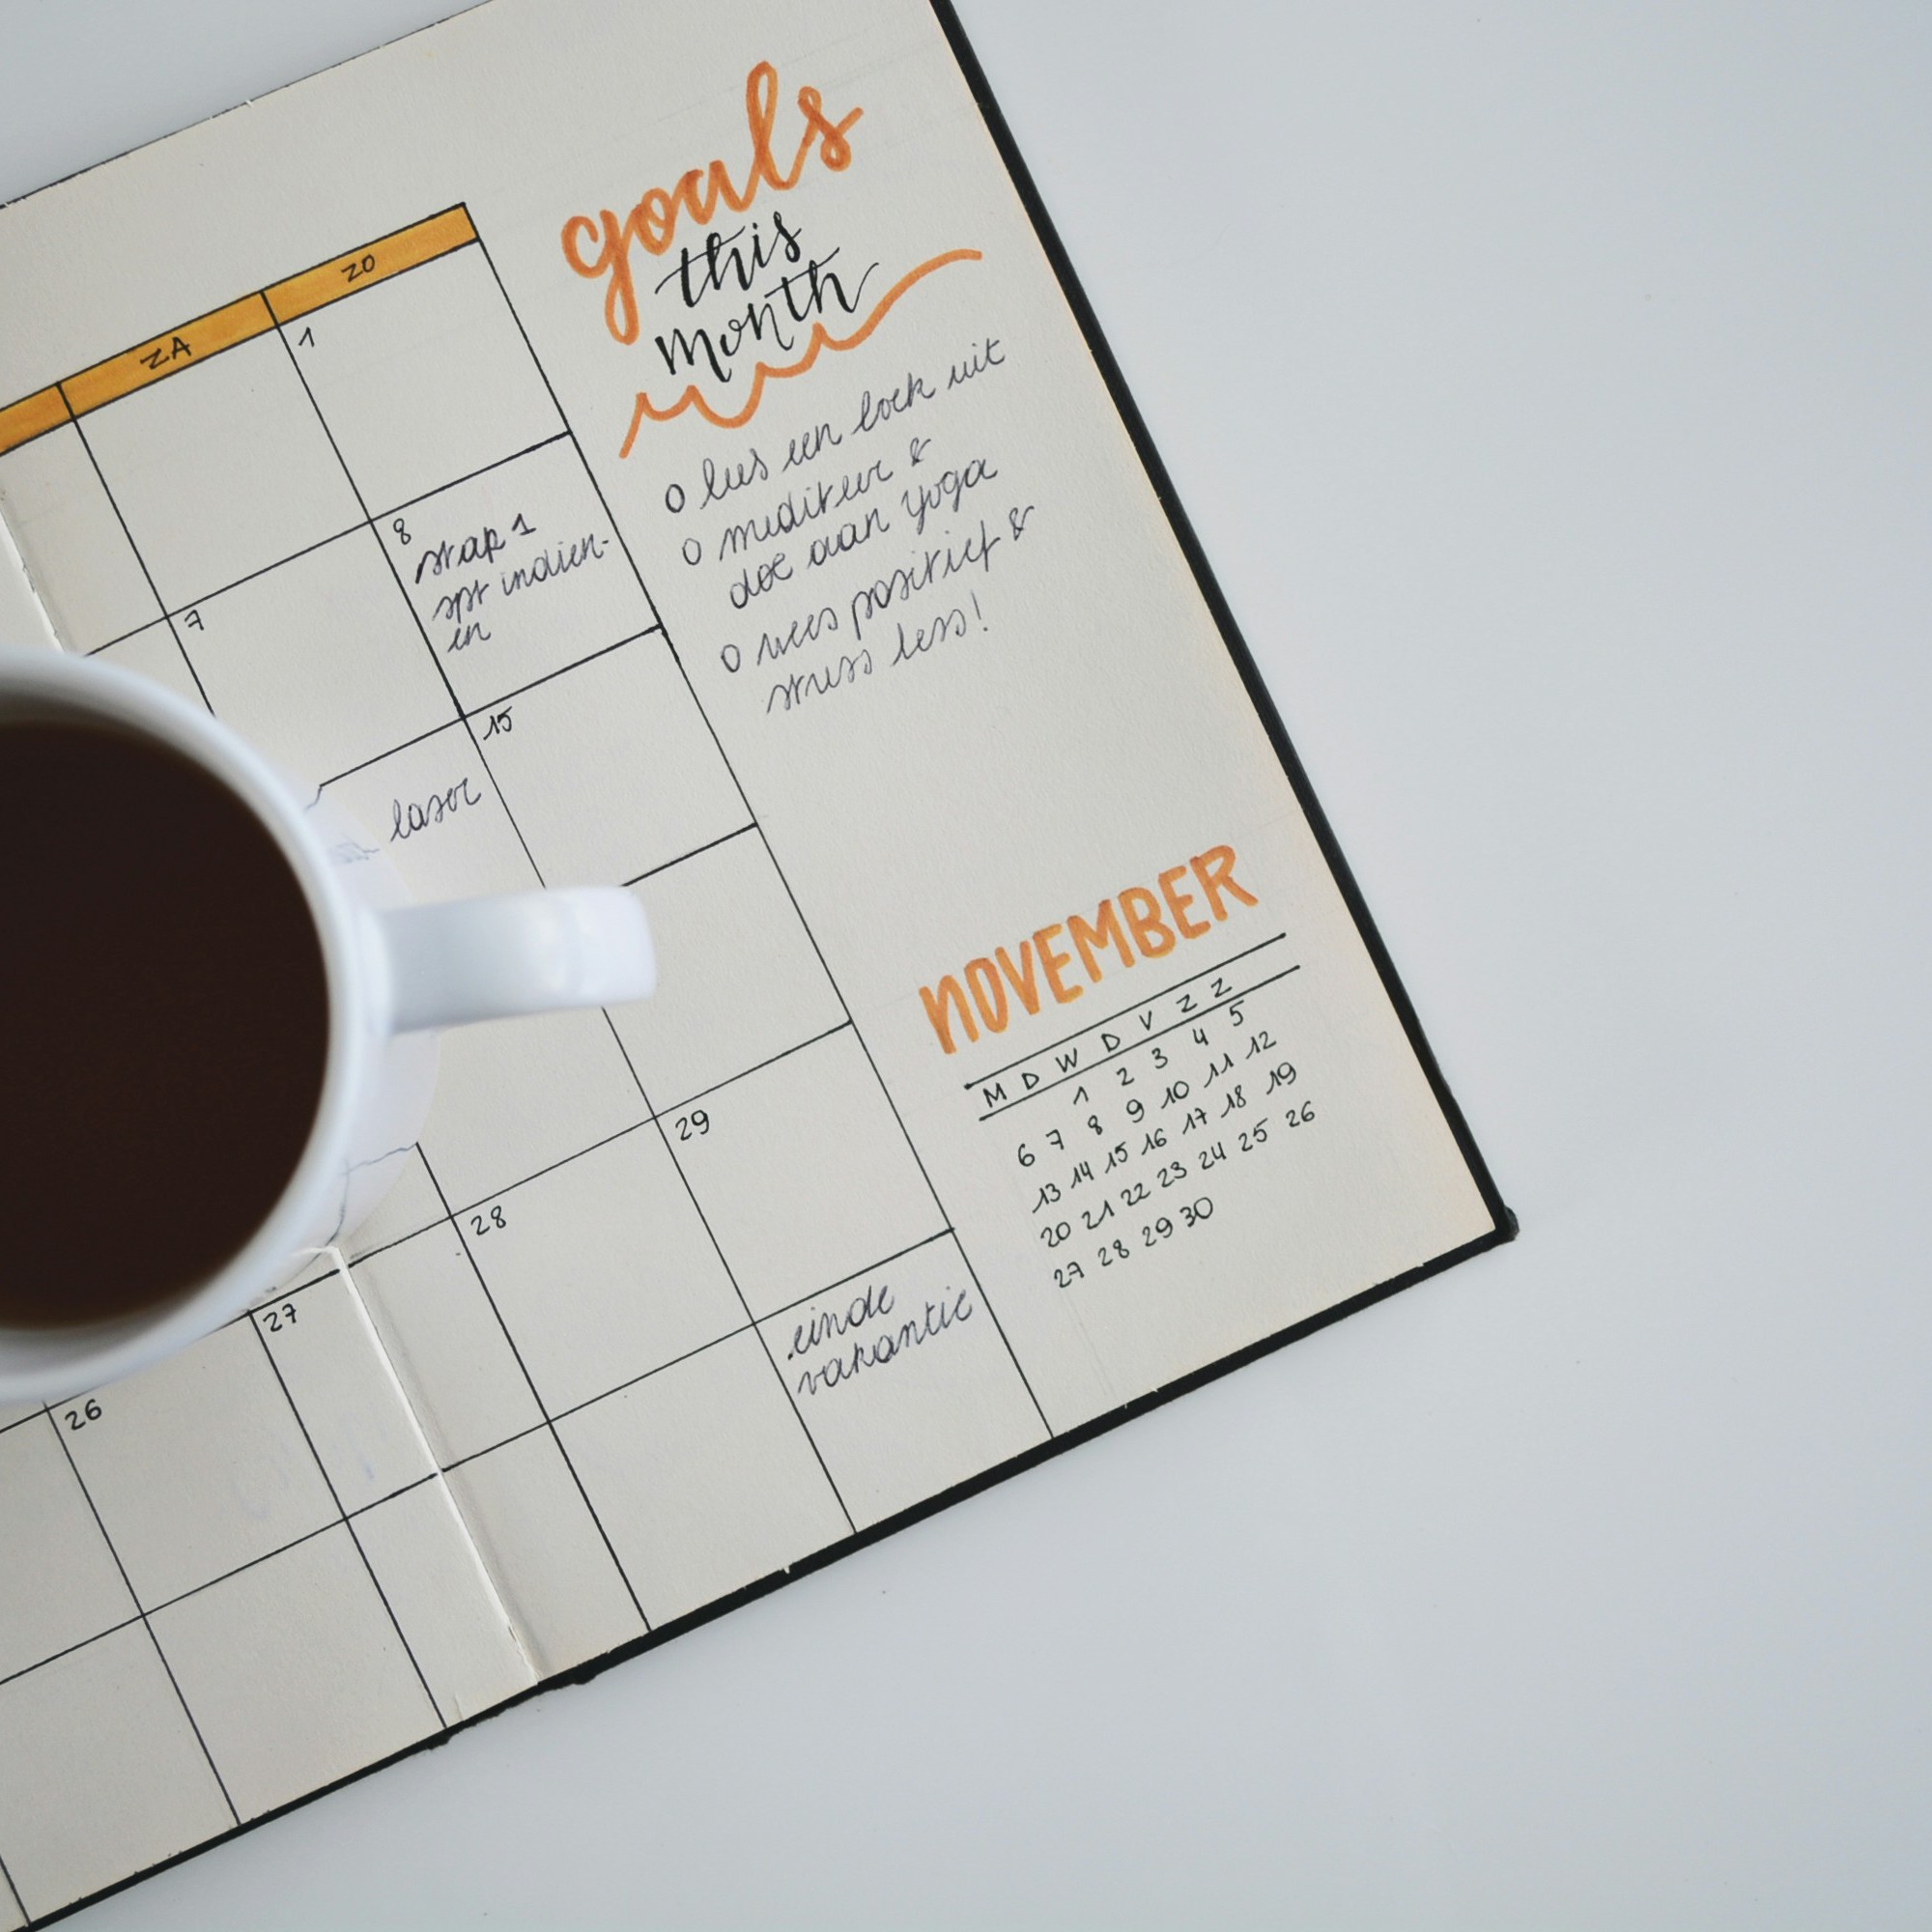 ZA ZO
1
7
8
stap 1
spt indien-
en
15
laser
26
27
28
29
einde
vakantie
goals
this
month
o lees een boek uit
o mediteer &
doe aan yoga
o wees positief &
stress less!
NOVEMBER
M D W D V Z Z
1 2 3 4 5
6 7 8 9 10 11 12
13 14 15 16 17 18 19
20 21 22 23 24 25 26
27 28 29 30